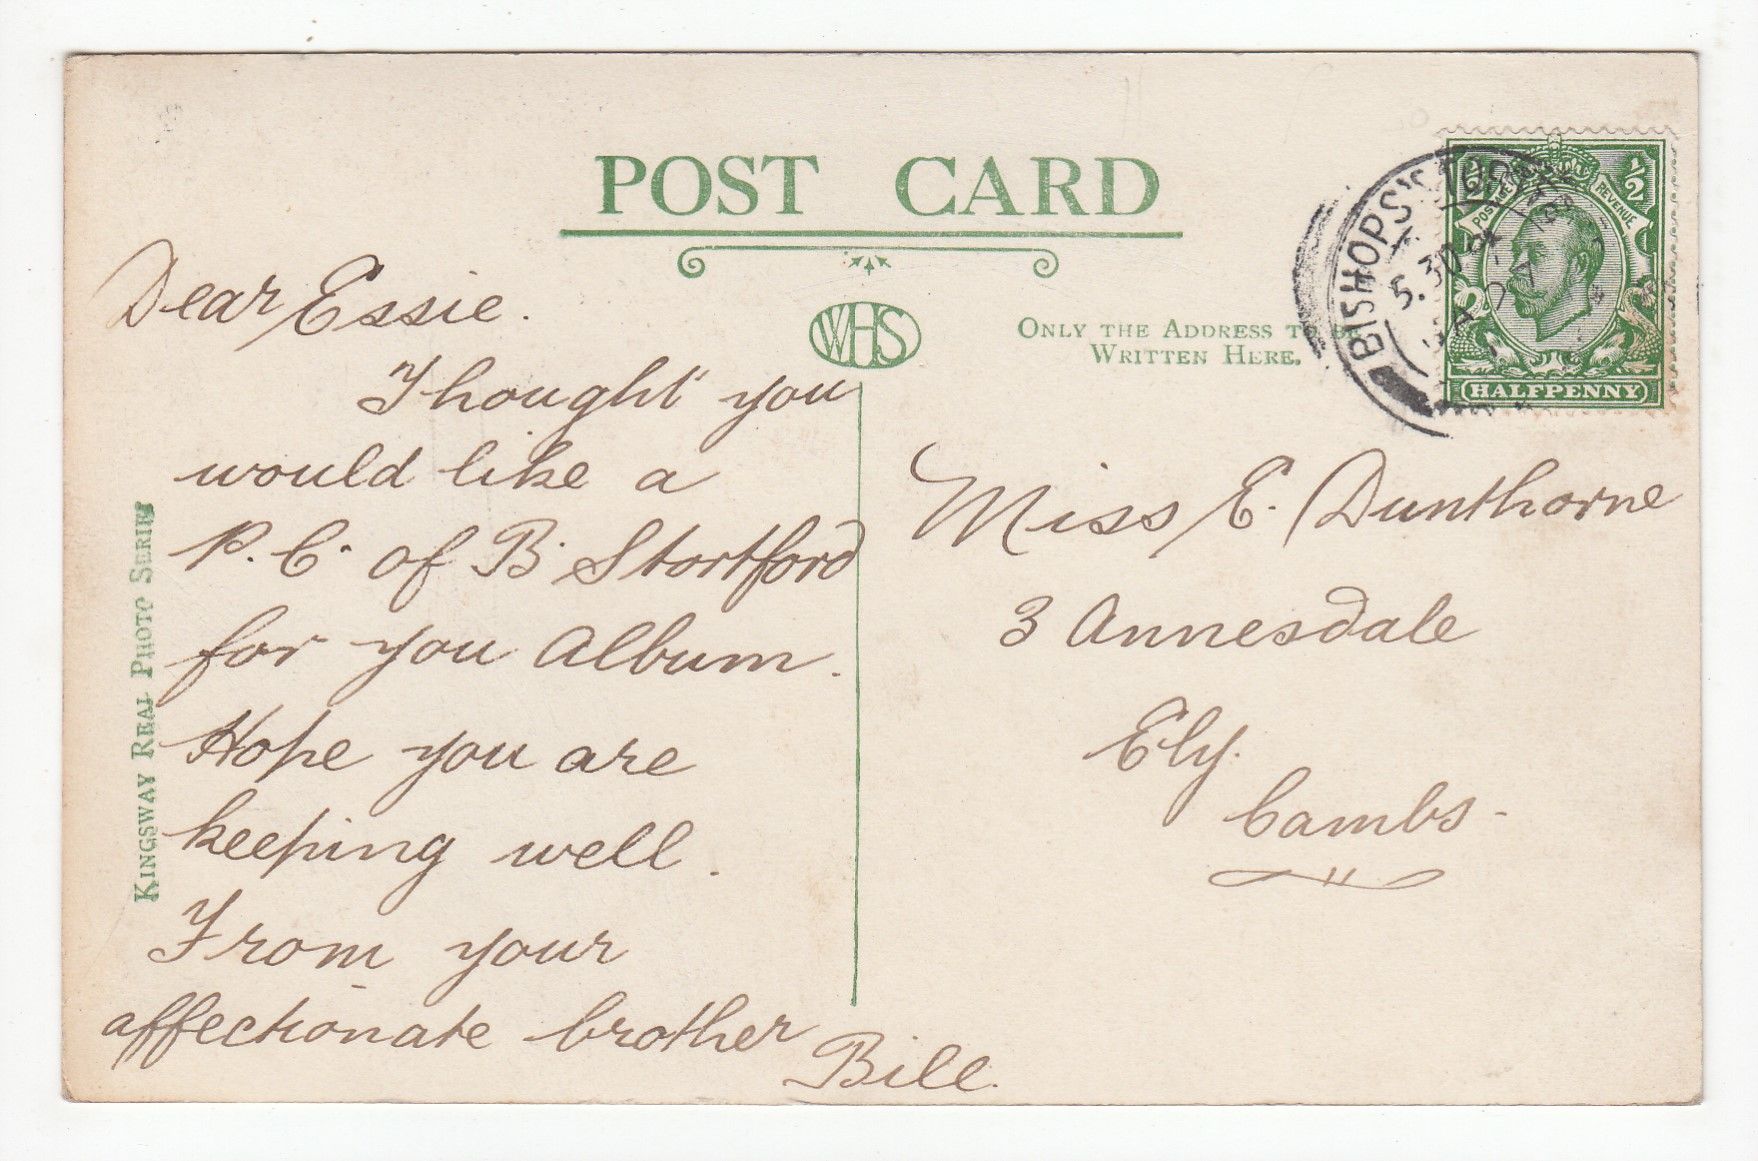 POST CARD
WHS
ONLY THE ADDRESS TO BE
WRITTEN HERE.
BISHOP'S STORTFORD
5.30
27
POSTAGE REVENUE
½ ½
HALFPENNY
KINGSWAY REAL PHOTO SERIES
Dear Essie.
Thought you
would like a
P.C. of B. Stortford
for you Album.
Hope you are
keeping well.
From your
affectionate brother
Bill.
Miss E. Dunthorne
3 Annesdale
Ely.
Cambs-